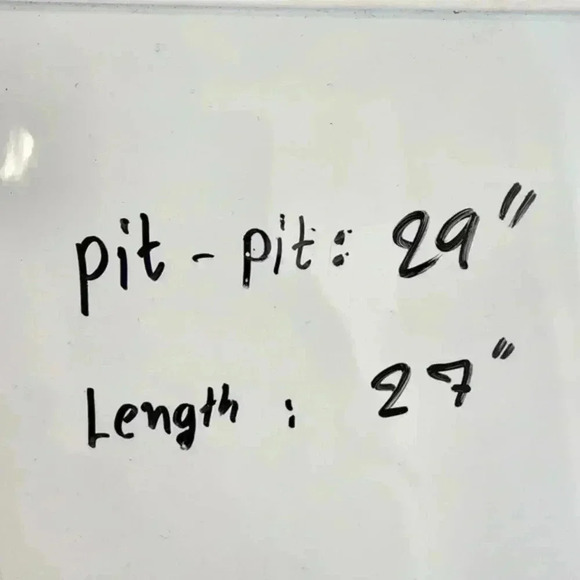 pit - pit: 29"
Length : 27"